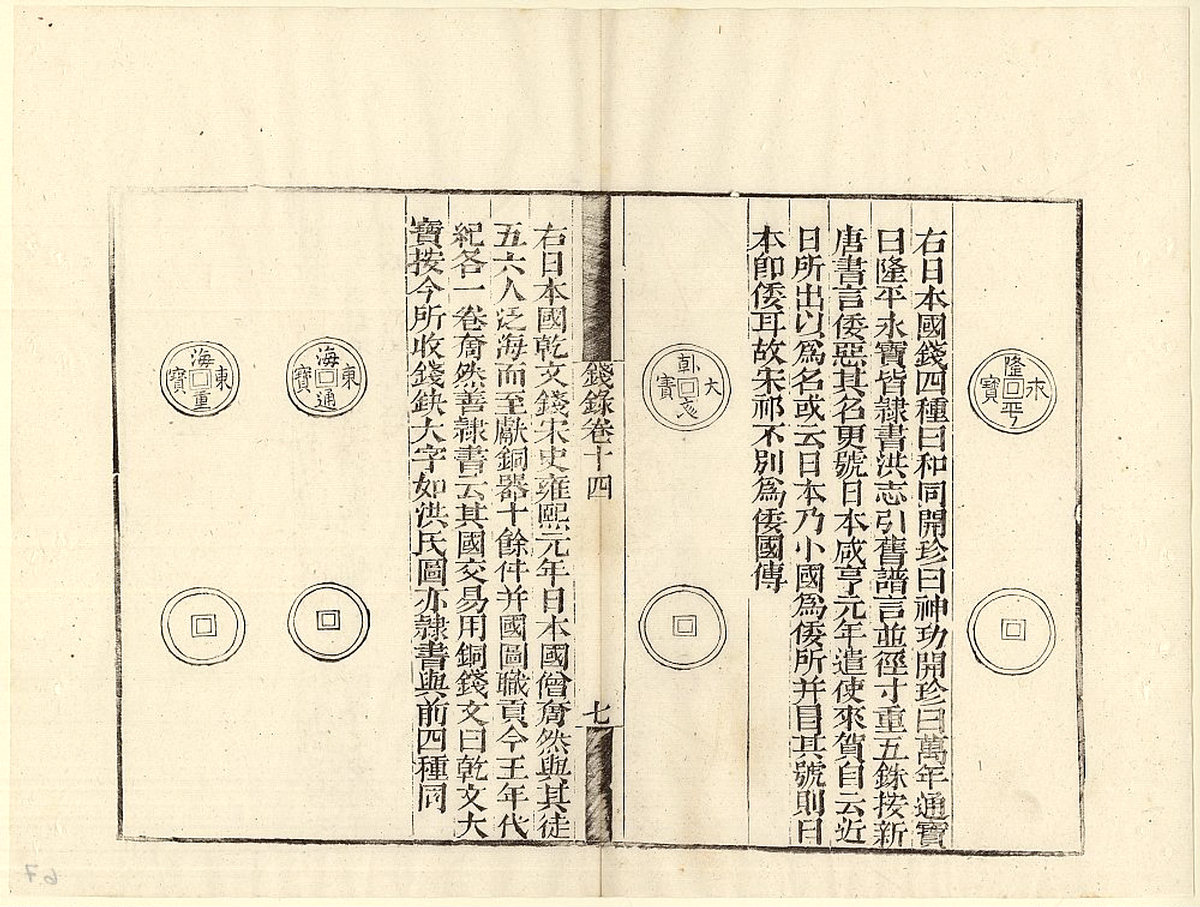 隆平永寶
右日本國錢四種曰和同開珍曰神功開珍曰萬年通寶
曰隆平永寶皆隸書洪志引舊譜言並徑寸重五銖按新
唐書言倭惡其名更號日本咸亨元年遣使來賀自云近
日所出以為名或云日本乃小國為倭所并冒其號則日
本即倭耳故宋祁不別為倭國傳
大寶
錢錄卷十四
七
右日本國乾文錢宋史雍熙元年日本國僧奝然與其徒
五六人泛海而至獻銅器十餘件并國圖職貢今王年代
紀各一卷奝然善隸書云其國交易用銅錢文曰乾文大
寶按今所收錢鈌大字如洪氏圖亦隸書與前四種同
海東通寶
海東重寶
67